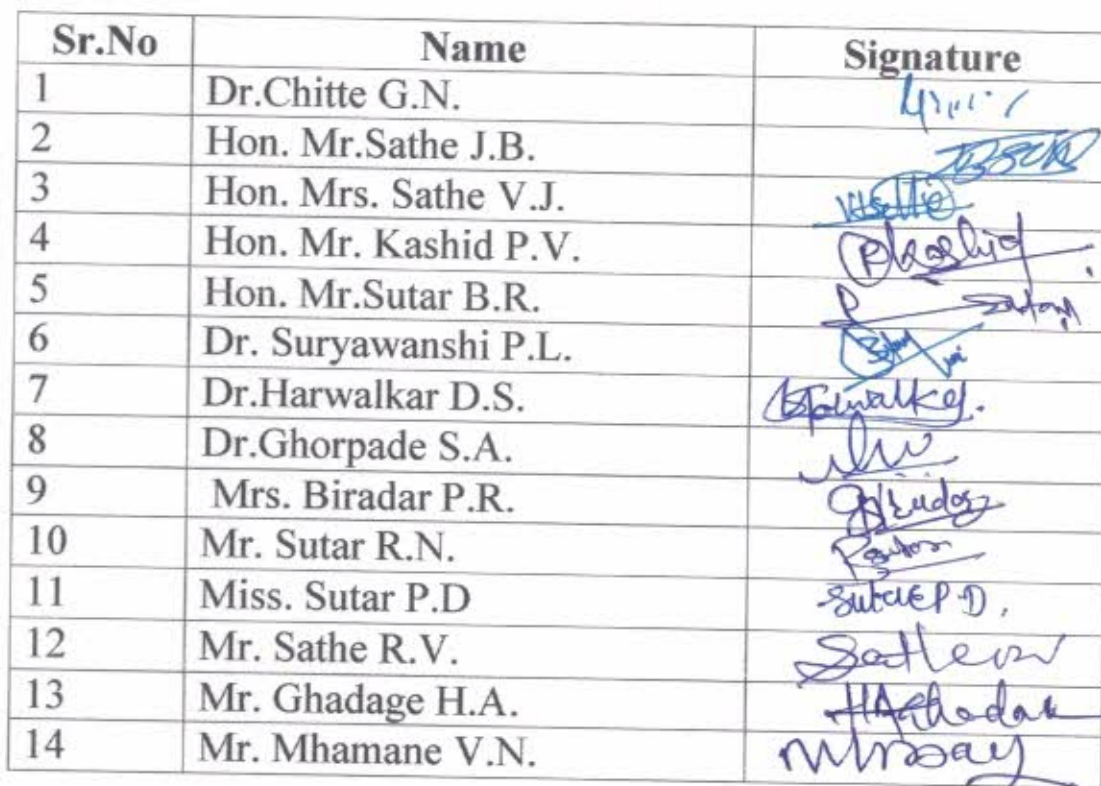 Sr.No Name Signature
1 Dr.Chitte G.N.
2 Hon. Mr.Sathe J.B.
3 Hon. Mrs. Sathe V.J.
4 Hon. Mr. Kashid P.V. PKashid
5 Hon. Mr.Sutar B.R.
6 Dr. Suryawanshi P.L.
7 Dr.Harwalkar D.S.
8 Dr.Ghorpade S.A.
9 Mrs. Biradar P.R.
10 Mr. Sutar R.N.
11 Miss. Sutar P.D
12 Mr. Sathe R.V.
13 Mr. Ghadage H.A.
14 Mr. Mhamane V.N.